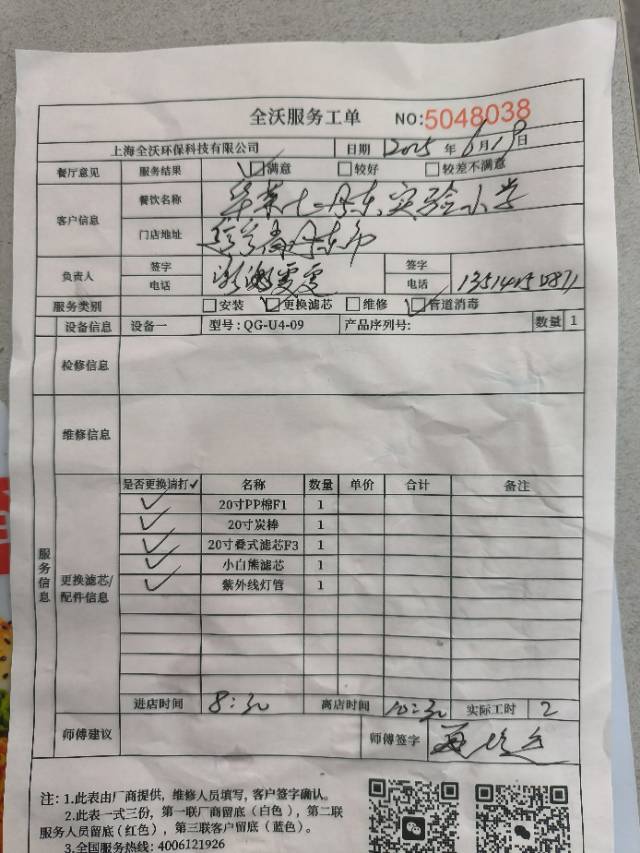 全沃服务工单 NO:5048038
上海全沃环保科技有限公司 日期 2025年6月19日
餐厅意见 服务结果 满意 较好 较差不满意
客户信息 餐饮名称 华莱士-丹东实验小学
门店地址 辽宁省丹东市
负责人 签字 签字
电话 电话
服务类别 安装 更换滤芯 维修 管道消毒
设备信息 设备一 型号:QG-U4-09 产品序列号: 数量 1
检修信息
维修信息
服务信息
更换滤芯/配件信息
是否更换请打✓ 名称 数量 单价 合计 备注
✓ 20寸PP棉F1 1
✓ 20寸炭棒 1
✓ 20寸叠式滤芯F3 1
✓ 小白熊滤芯 1
✓ 紫外线灯管 1
进店时间 8:30 离店时间 10:30 实际工时 2
师傅建议 师傅签字
注:1.此表由厂商提供,维修人员填写,客户签字确认。
2.此表一式三份,第一联厂商留底(白色),第二联
服务人员留底(红色),第三联客户留底(蓝色)。
3.全国服务热线:4006121926